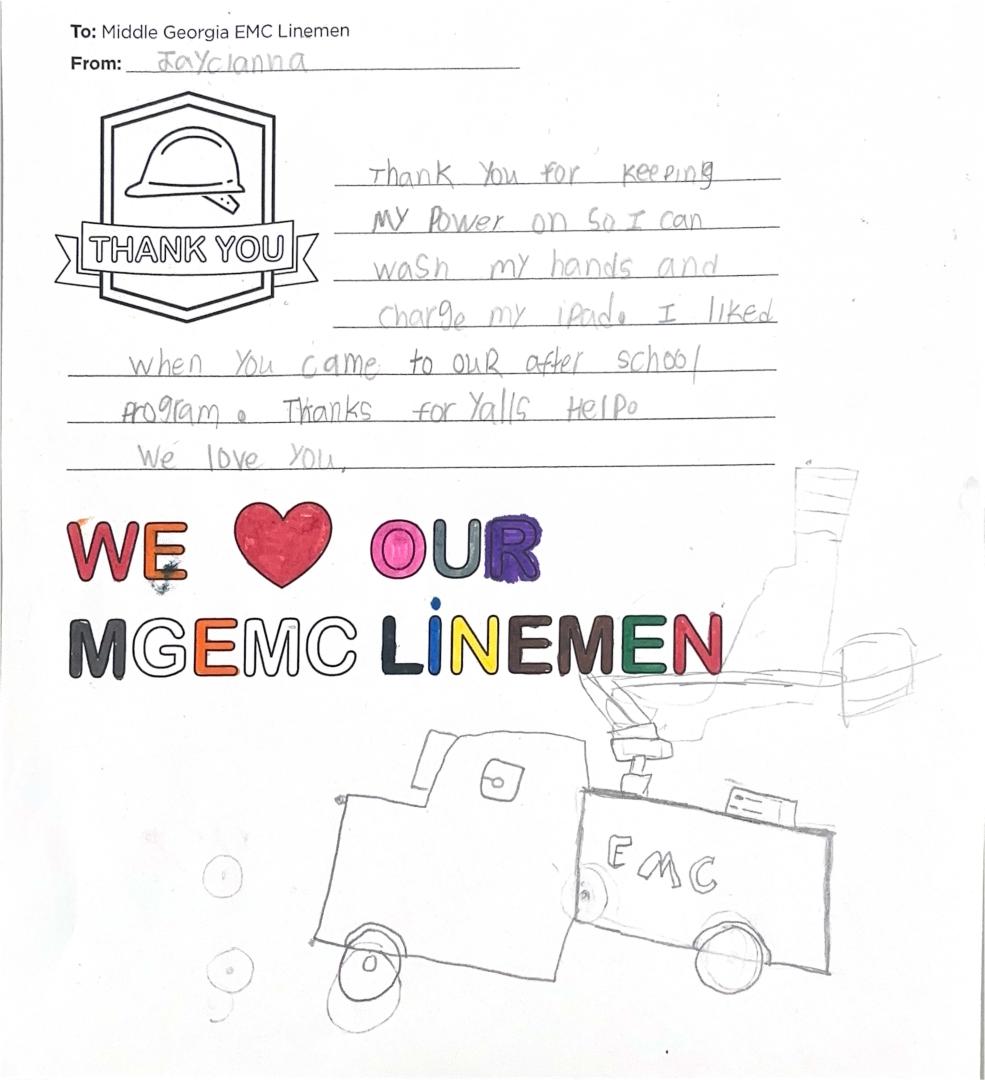 To: Middle Georgia EMC Linemen
From: Jaycianna
THANK YOU
Thank You for keeping
MY Power on So I can
wash my hands and
charge my ipad. I liked
when You came to ouR after school
program. Thanks for Yalls Help.
We love You,
WE OUR
MGEMC LiNEMEN
EMC